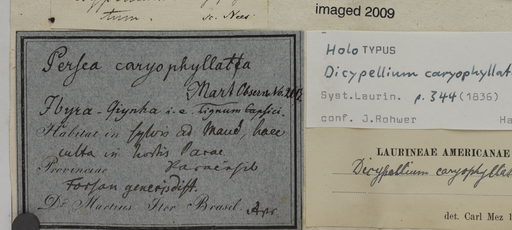 tum. sc. Nees
imaged 2009
Persea caryophyllata
Mart Observ. No.
Ibyra-Qiynha i.e. Lignum Capsici.
Habitat in sylvis ad Maué, haec
culta in hortis Parae
Provinciae Paraensis
Forsan generis dist.
Dr. Martius Iter Brasil.
Holo TYPUS
Dicypellium caryophyllat
Syst. Laurin. p. 344 (1836)
conf. J. Rohwer Ha
LAURINEAE AMERICANAE
Dicypellium caryophyllat
det. Carl Mez 1